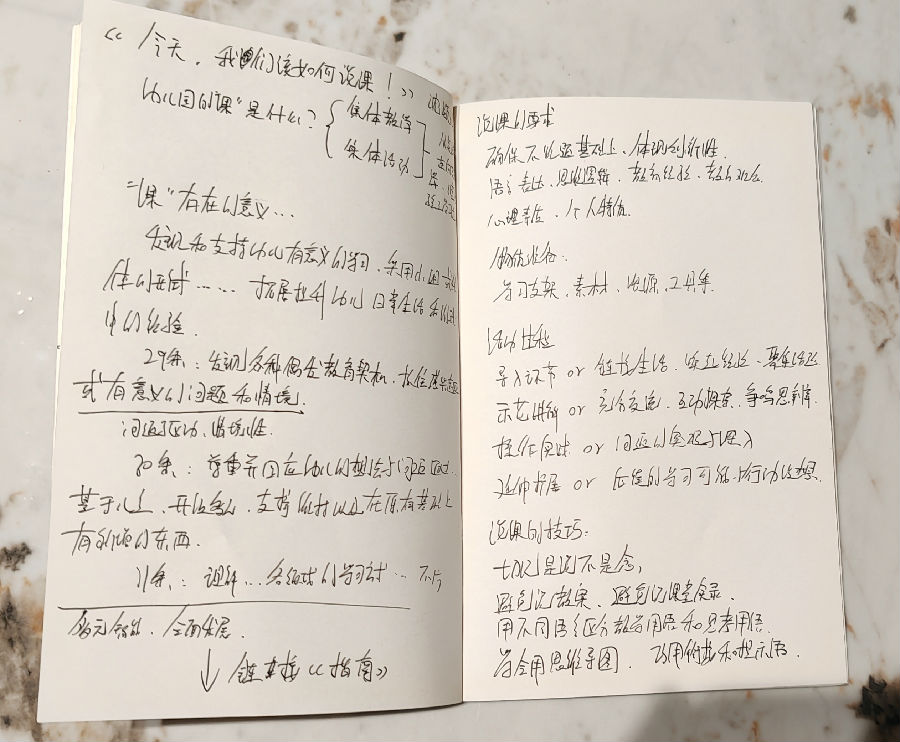 《今天，我们该如何说课！》
幼儿园的"课"是什么？{集体教学
集体活动
"课"存在的意义…
发现和支持幼儿有意义的学习，采用小组、集
体的形式……拓展提升幼儿日常生活和游戏
中的经验.
29条：发现各种偶发教育契机，抓住
或有意义的问题和情境.
问题驱动、情境性.
30条：尊重并回应幼儿的想法与问题
基于儿童，开放式，支持 在原有基础上
有新的东西.
31条：理解…各领域的学习方式…
多元 、全面发展.
↓ 链接《指南》
说课的要求
确保不 基础上、体现创新性.
语言表达、思维逻辑、教育经验、教育观念
心理素质、个人特质.
准备：
学习支架、素材、资源、工具等.
活动过程
导入环节 or 链接生活、 经验、聚焦话题
示范讲解 or 充分交流、互动探索、争鸣思辨
操作实践 or 问题的实操与深入
延伸拓展 or 后续的学习可能与行动设想.
说课的技巧：
切记是说不是念，
避免记教案、避免记课堂实录.
用不同语气区分教学用语和思考用语.
学会用思维导图. 巧用 和提示语.